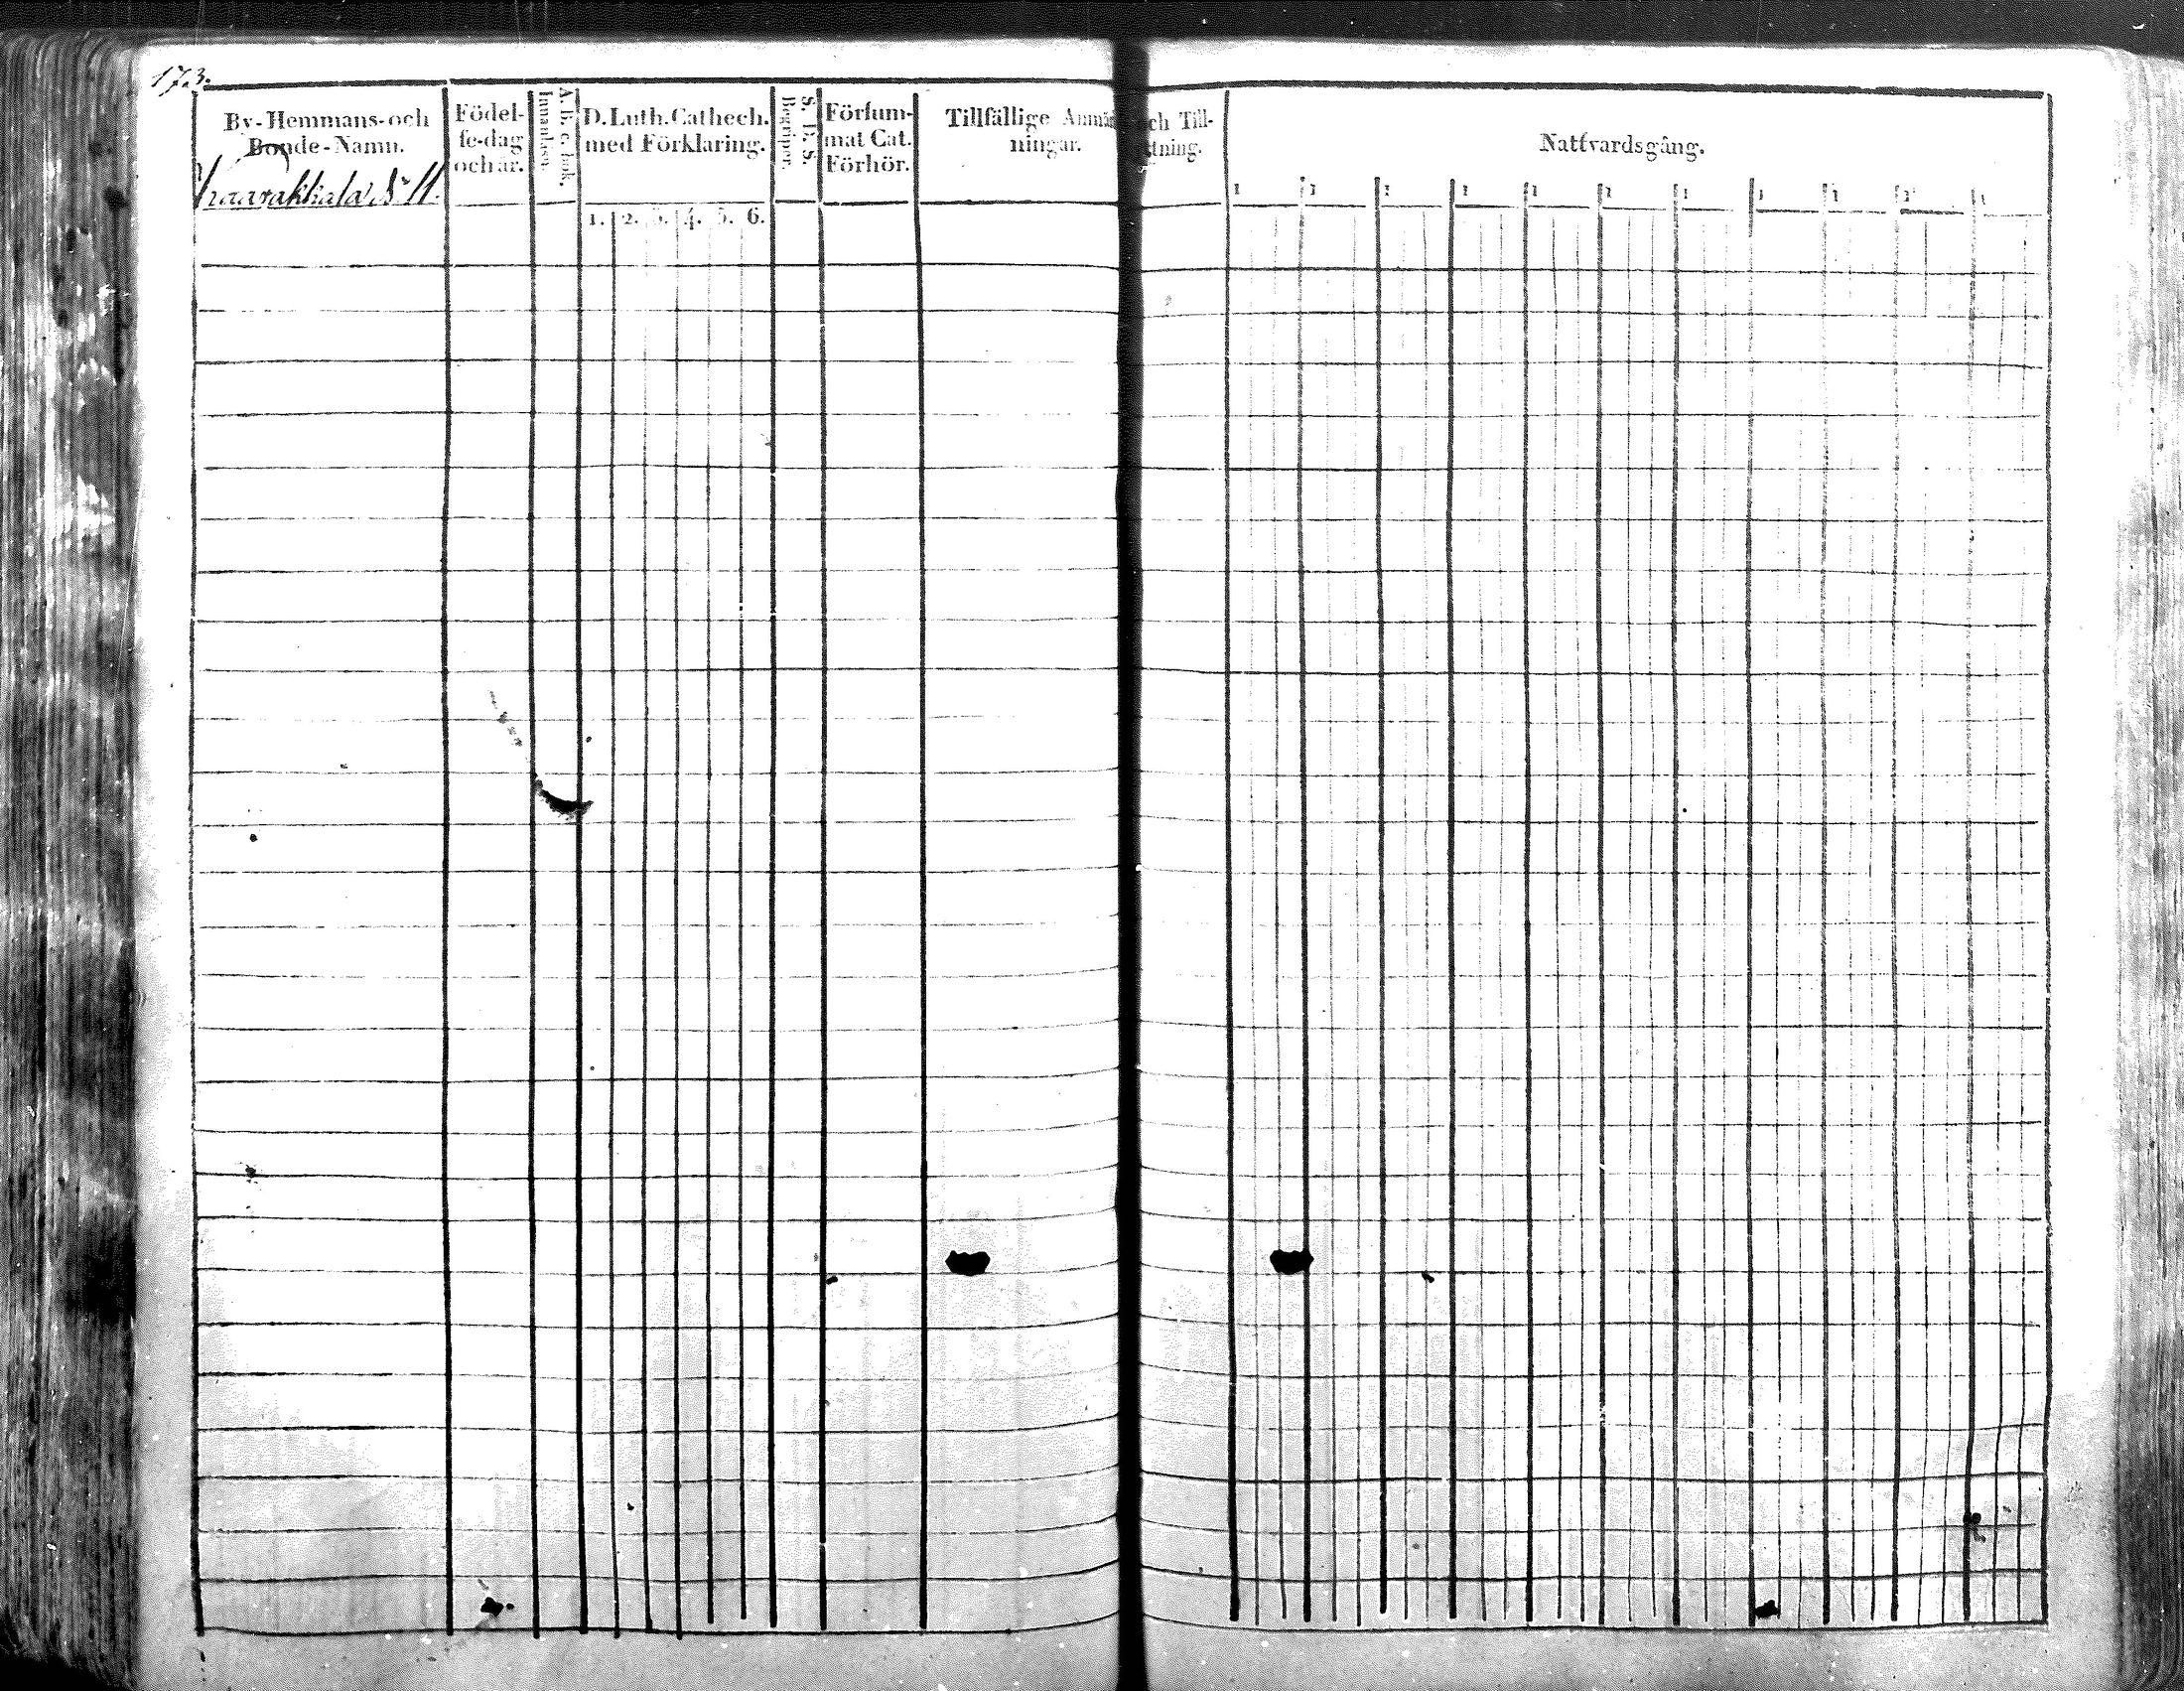 173.
By-Hemmans-och
Bonde-Namn.
Födel-
se-dag
och år.
A. B. c. bok.
Innanläsn.
D. Luth. Cathech.
med Förklaring.
1. 2. 3. 4. 5. 6.
S. D. S.
Begriper.
Försum-
mat Cat.
Förhör.
Tillfällige Anmär
ningar.
och Till-
tning.
Nattvardsgång.
1 1 1 1 1 1 1 1 1 1 1